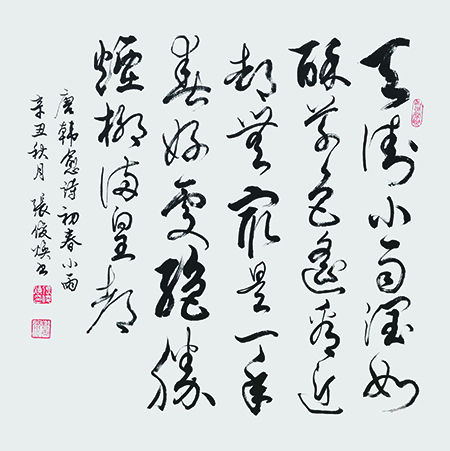 天街小雨潤如
酥草色遥看近
却無最是一年
春好處絕勝
煙柳满皇都
唐韓愈诗初春小雨
辛丑秋月 張俊煥书